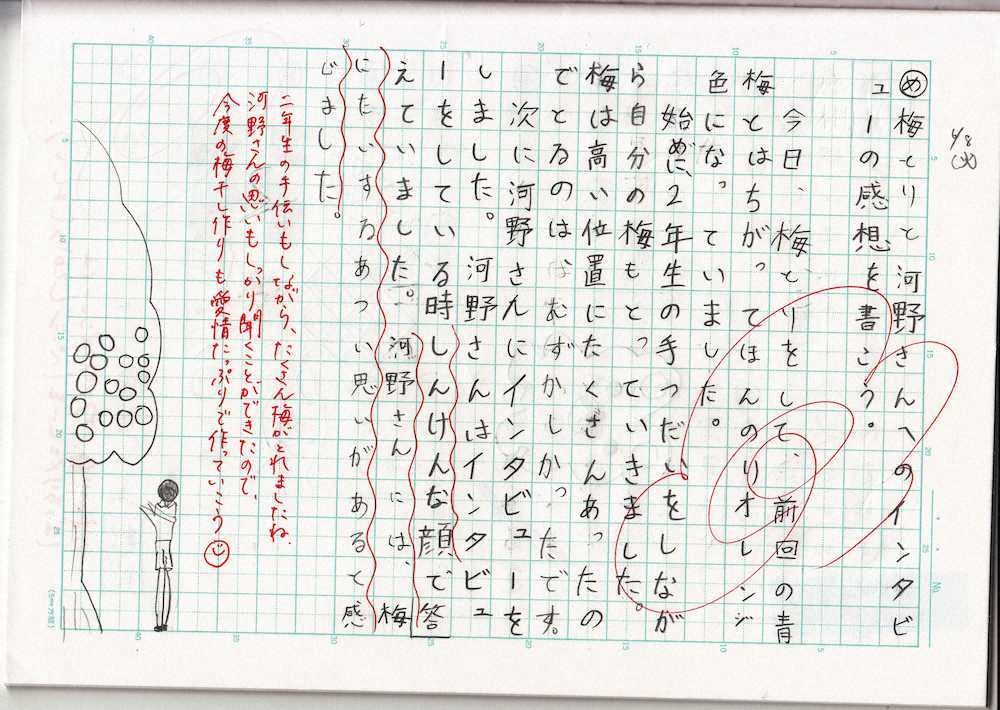 6/8
(火)
め梅とりと河野さんへのインタビ
ューの感想を書こう。
今日、梅とりをして、前回の青
梅とはちがってほんのりオレンジ
色になっていました。
始めに、2年生の手つだいをしなが
ら自分の梅もとっていきました。
梅は高い位置にたくさんあったの
でとるのはむずかしかったです。
次に河野さんにインタビューを
しました。河野さんはインタビュ
ーをしている時しんけんな顔で答
えていました。河野さんには、梅
にたいするあつい思いがあると感
じました。
二年生の手伝いもしながら、たくさん梅がとれましたね。
河野さんの思いもしっかり聞くことができたので、
今度の梅干し作りも愛情たっぷりで作っていこう
No.
5
10
15
20
25
30
35
40
5
10
15
20
25